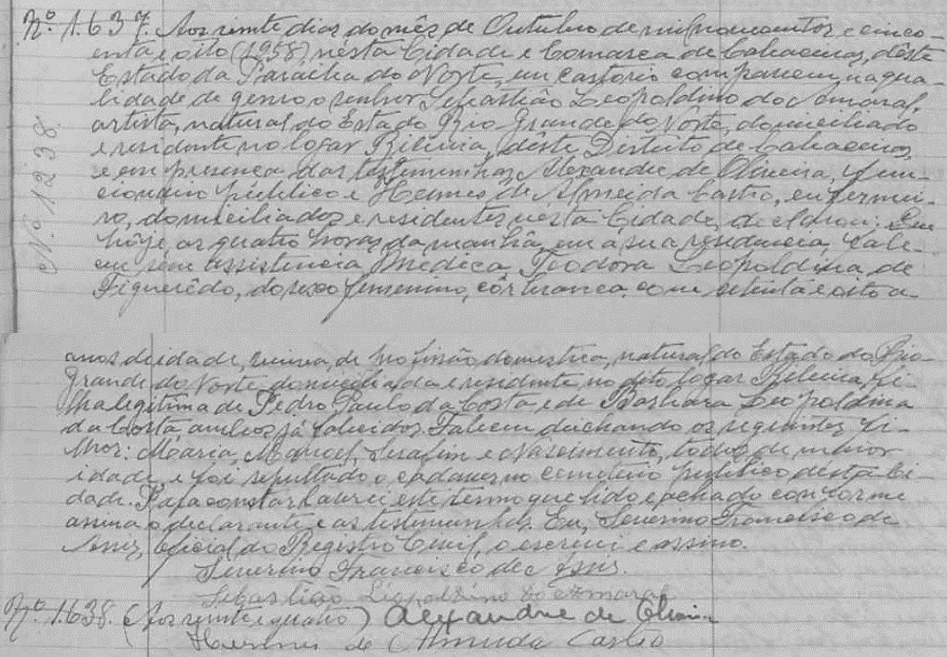 Nº 1.637. Aos vinte dias do mês de Outubro de mil novecentos e cinco-
enta e oito (1958), nesta Cidade e Comarca de Cabaceiras, dêste
Estado da Paraiba do Norte, em cartorio compareceu, na qua-
lidade de genro, o senhor Sebastião Leopoldino do Amaral,
artista, natural do Estado Rio Grande do Norte, domiciliado
e residente no logar Ribeira, dêste Distrito de Cabaceiras,
e em presença das testemunhas Alexandre de Oliveira, fun-
cionario público e Hermes de Almeida Castro, enfermei-
ro, domiciliados e residentes nesta Cidade, declarou: Que
hoje, as quatro horas da manhã, em a sua residencia, fale-
ceu sem assistencia Medica, Teodora Leopoldina de
Figuerêdo, do sexo femenino, côr branca, com setenta e oito a-
Nº 1238
nos de idade, viuva, de profissão domestica, natural do Estado do Rio
Grande do Norte domiciliada e residente no dito logar Ribeira, fi-
lha legitima de Pedro Paulo da Costa e de Barbara Leopoldina
da Costa, ambos já falecidos. Faleceu deichando os seguintes fi-
lhos: Maria, Manoel, Serafim e Nascimento, todos de maior
idade, e foi sepultado o cadaver no cemeterio publico desta Ci-
dade. Para constar lavrei este termo que lido e achado conforme
assina o declarante e as testemunhas. Eu, Severino Francisco de
Assis, Oficial do Registro Civil, o escrevi e assino.
Severino Francisco de Assis.
Sebastião Liopoldino do Amaral
Nº 1.638. (Aos vinte e quatro) Alexandre de Oliveira
Hermes de Almeida Castro